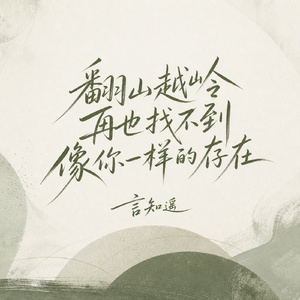 翻山越岭
再也找不到
像你一样的存在
言知遥